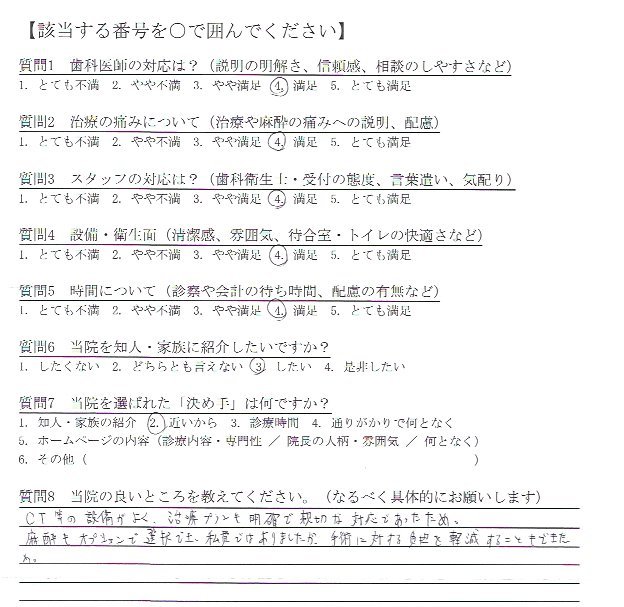 【該当する番号を〇で囲んでください】
質問1 歯科医師の対応は？（説明の明解さ、信頼感、相談のしやすさなど）
1. とても不満 2. やや不満 3. やや満足 4. 満足 5. とても満足
質問2 治療の痛みについて（治療や麻酔の痛みへの説明、配慮）
1. とても不満 2. やや不満 3. やや満足 4. 満足 5. とても満足
質問3 スタッフの対応は？（歯科衛生士・受付の態度、言葉遣い、気配り）
1. とても不満 2. やや不満 3. やや満足 4. 満足 5. とても満足
質問4 設備・衛生面（清潔感、雰囲気、待合室・トイレの快適さなど）
1. とても不満 2. やや不満 3. やや満足 4. 満足 5. とても満足
質問5 時間について（診察や会計の待ち時間、配慮の有無など）
1. とても不満 2. やや不満 3. やや満足 4. 満足 5. とても満足
質問6 当院を知人・家族に紹介したいですか？
1. したくない 2. どちらとも言えない 3. したい 4. 是非したい
質問7 当院を選ばれた「決め手」は何ですか？
1. 知人・家族の紹介 2. 近いから 3. 診療時間 4. 通りがかりで何となく
5. ホームページの内容（診療内容・専門性 ／ 院長の人柄・雰囲気 ／ 何となく）
6. その他（ ）
質問8 当院の良いところを教えてください。（なるべく具体的にお願いします）
CT等の設備がよく、治療プランも明確で親切な対応であったため。
麻酔もオプションで選択でき、私費ではありましたが、手術に対する負担を軽減することもできたため。